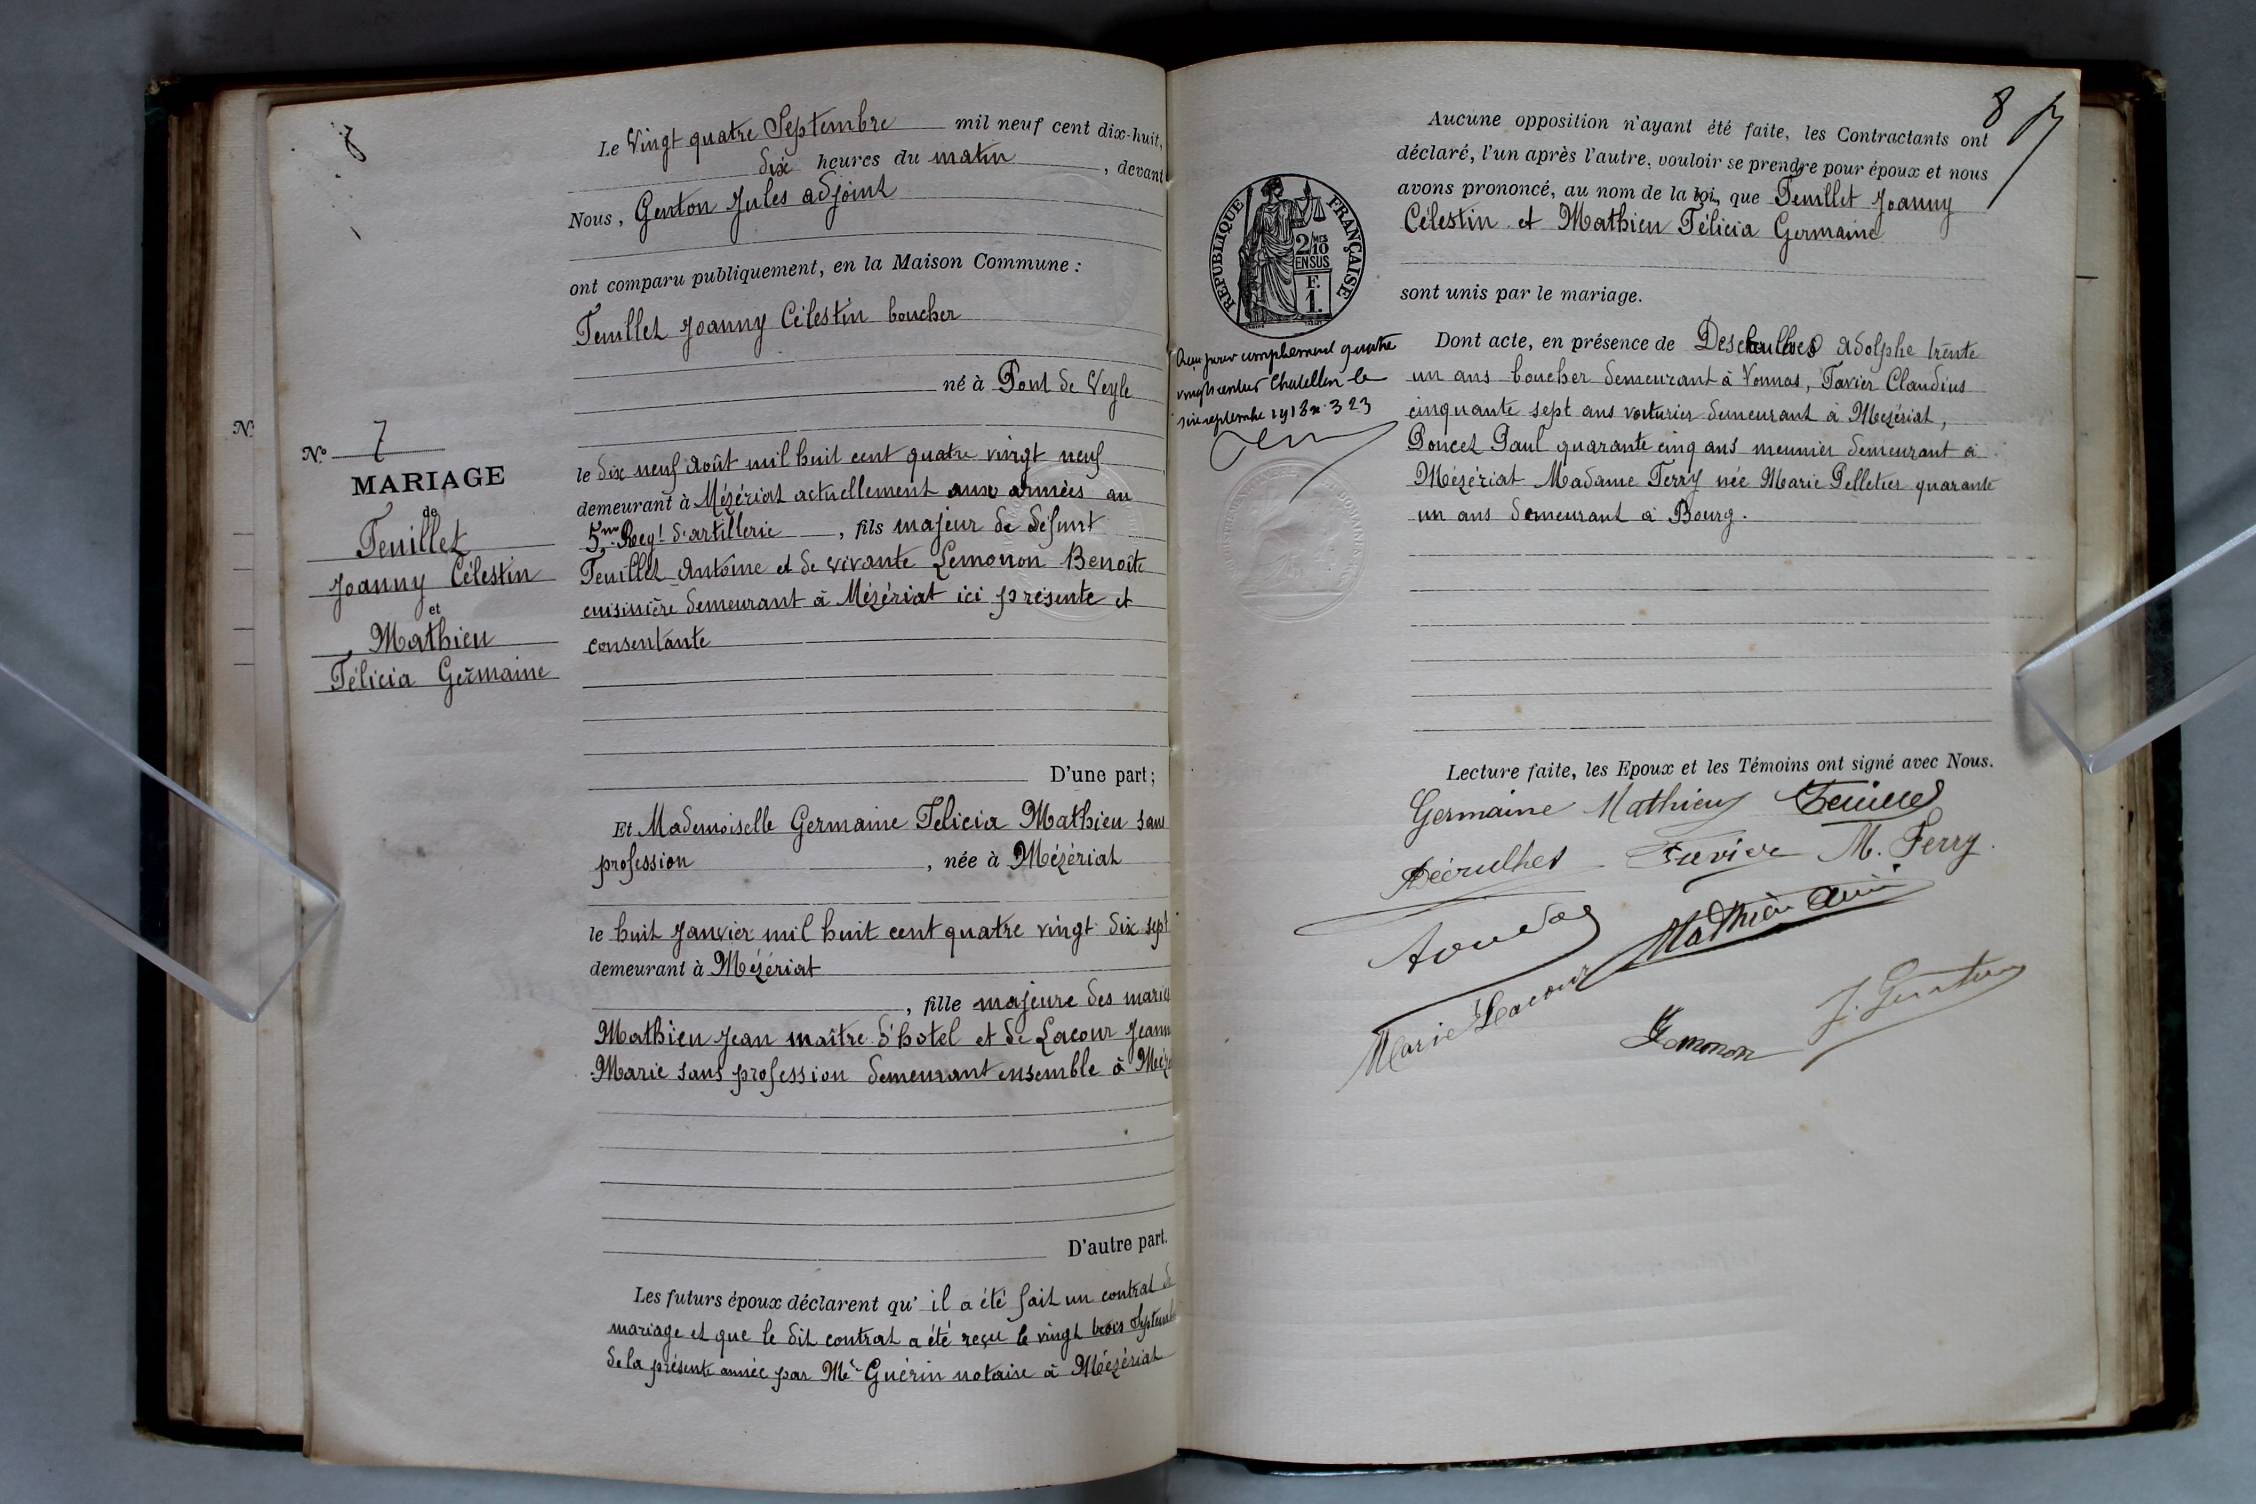 8
Le Vingt quatre Septembre mil neuf cent dix-huit,
dix heures du matin, devant
Nous, Genton Jules adjoint
ont comparu publiquement, en la Maison Commune :
Feuillet Joanny Célestin boucher
né à Pont de Veyle
N°
N° 7
MARIAGE
de
Feuillet
Joanny Célestin
et
Mathieu
Félicia Germaine
le dix neuf Août mil huit cent quatre vingt neuf
demeurant à Mézériat actuellement aux armées au
5me Regt d'artillerie, fils majeur de défunt
Feuillet Antoine et de vivante Lemonon Benoîte
cuisinière demeurant à Mézériat ici présente et
consentante
D'une part ;
Et Mademoiselle Germaine Felicia Mathieu sans
profession, née à Mézériat
le huit Janvier mil huit cent quatre vingt dix sept
demeurant à Mézériat
, fille majeure des mariés
Mathieu Jean maître d'hotel et de Lacour Jeanne
Marie sans profession demeurant ensemble à Mézé
D'autre part.
Les futurs époux déclarent qu' il a été fait un contrat de
mariage et que le dit contrat a été reçu le vingt trois Septembre
de la présente année par Me Guérin notaire à Mézériat
8
Aucune opposition n'ayant été faite, les Contractants ont
déclaré, l'un après l'autre, vouloir se prendre pour époux et nous
avons prononcé, au nom de la loi, que Feuillet Joanny
Célestin et Mathieu Félicia Germaine
sont unis par le mariage.
RÉPUBLIQUE FRANÇAISE
2/10 MES
EN SUS
F.
1.
Reçu pour complément quatre
vingts centimes Chatillon le
six septembre 1918 n° 323
Dont acte, en présence de Adolphe trente
un ans boucher demeurant à Vonnas, Favier Claudius
cinquante sept ans voiturier demeurant à Mézériat,
Poncet Paul quarante cinq ans meunier demeurant à
Mézériat Madame Ferry née Marie Pelletier quarante
un ans demeurant à Bourg.
Lecture faite, les Epoux et les Témoins ont signé avec Nous.
Germaine Mathieu Feuillet
Favier M. Ferry
Mathieu
Marie Lacour
Lemonon
J. Genton